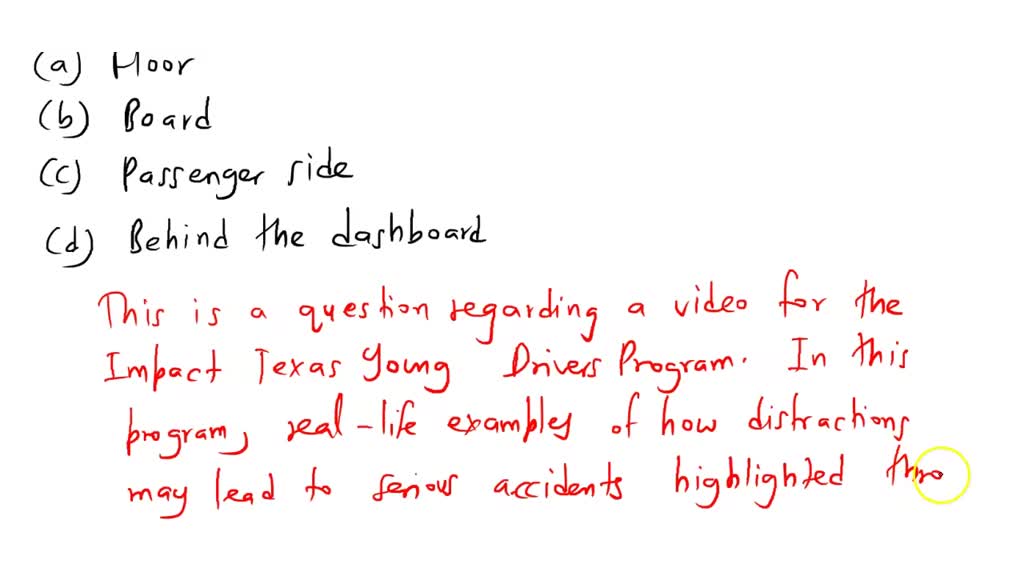 (a) Floor
(b) Board
(c) Passenger side
(d) Behind the dashboard
This is a question regarding a video for the
Impact Texas Young Drivers Program. In this
program, real-life examples of how distractions
may lead to serious accidents highlighted thro